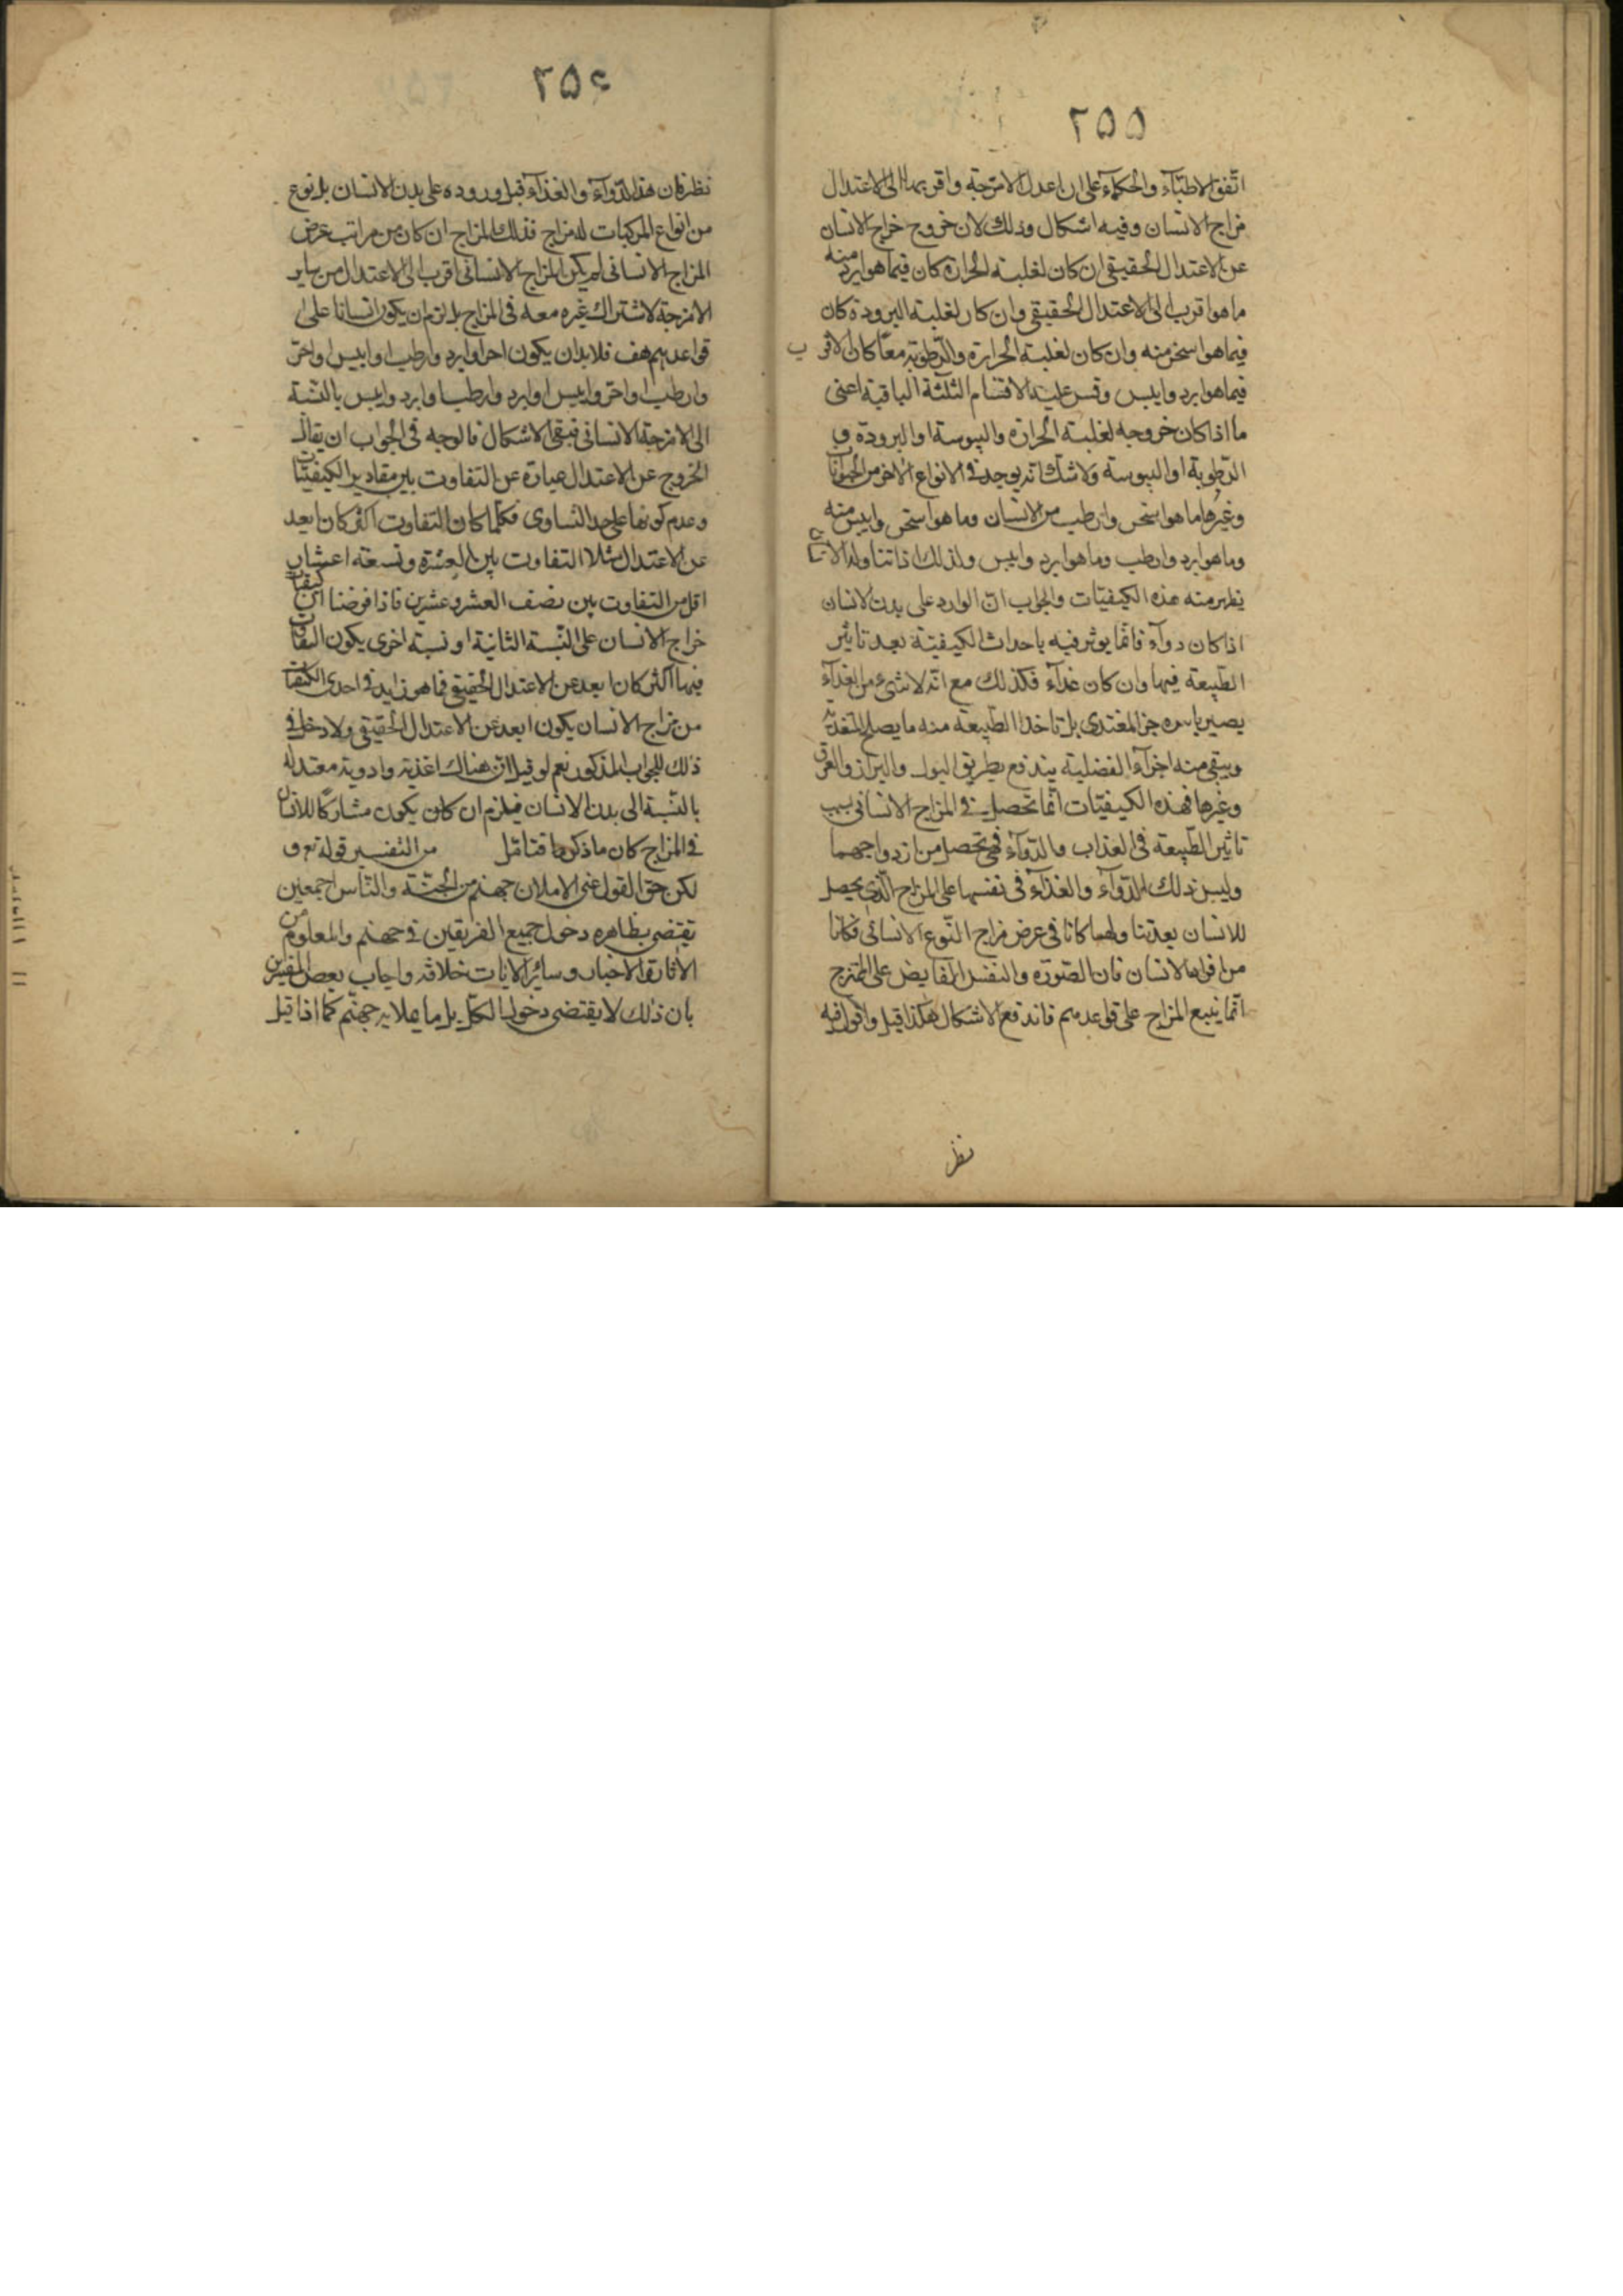 ٢٥٥
اتّفق الاطبّآء والحكمآء على ان اعدل الامزجة واقربها الى الاعتدال
مزاج الانسان وفيه اشكال وذلك لان خروج مزاج الانسان
عن الاعتدال الحقيقى ان كان لغلبة الحرارة كان فيما هو ابرد منه
ما هو اقرب الى الاعتدال الحقيقى وان كان لغلبة البرودة كان
فيما هو اسخن منه وان كان لغلبة الحرارة والرّطوبة معًا كان الاقرب
فيما هو ابرد وايبس وقس عليه الاقسام الثلثة الباقية اعنى
ما اذا كان خروجه لغلبة الحرارة واليبوسة او البرودة و
الرّطوبة او اليبوسة ولا شك انّه يوجد فى الانواع الاخر من الحيوانات
وغيرها ما هو اسخن وارطب من الانسان وما هو اسخن وايبس منه
وما هو ابرد وارطب وما هو ابرد وايبس ولذلك اذا تناوله الانسان
يظهر منه هذه الكيفيّات والجواب انّ الوارد على بدن الانسان
اذا كان دوآء فانّما يوثر فيه باحداث الكيفيّة بعد تاثير
الطّبيعة فيها وان كان غذآء فكذلك مع انّه لا شىء من الغذآء
يصير باسره جزء المغتدى بل تاخذ الطّبيعة منه ما يصلح للتغذية
ويبقى منه اجزآء الفضلية يندفع بطريق البول والبراز والعرق
وغيرها فهذه الكيفيّات انّما تحصل فى المزاج الانسانى بسبب
تاثير الطّبيعة فى الغذاب والدّوآء فهى تحصل من ازدواجهما
وليس ذلك الدّوآء والغذآء فى نفسهما على المزاج الّذى يحصل
للانسان بعد تناولهما كانا فى عرض مزاج النّوع الانسانى فكانا
من افراد الانسان فان الصّورة والنفس الفايض على الممتزج
انّما يتبع المزاج على قواعدهم فاندفع الاشكال هكذا قيل واقول فيه
نظر
٢٥٦
نظر فان هذا الدّوآء والغذآء قبل وروده على بدن الانسان بل نوع
من انواع المركبات له مزاج فذلك المزاج ان كان من مراتب عرض
المزاج الانسانى لم يكن المزاج الانسانى اقرب الى الاعتدال من ساير
الامزجة لاشتراك غيره معه فى المزاج بل لزم ان يكون انسانا على
قواعدهم هف فلا بد ان يكون احر او ابرد وارطب او ايبس او احرّ
وارطب او احرّ وايبس او ابرد وارطب او ابرد وايبس بالنّسبة
الى الامزجة الانسانى فبقى الاشكال فالوجه فى الجواب ان يقال
الخروج عن الاعتدال عبارة عن التفاوت بين مقادير الكيفيّات
وعدم كونها على حد التساوى فكلّما كان التفاوت اكثر كان ابعد
عن الاعتدال مثلا التفاوت بين العشرة وتسعة اعشار
اقل من التفاوت بين نصف العشر وعشرين فاذا فرضنا ان كيفيات
مزاج الانسان على النّسبة الثانية او نسبة اخرى يكون التفاوت
فيها اكثر كان ابعد عن الاعتدال الحقيقى فما هو زايد فى احدى الكيفيات
من مزاج الانسان يكون ابعد عن الاعتدال الحقيقى ولا دخل فى
ذلك للجواب المذكور نعم لو قيل انّ هناك اغذية وادوية معتدلة
بالنّسبة الى بدن الانسان فيلزم ان كان يكون مشاركًا للانسان
فى المزاج كان ما ذكرها فتامّل من التفسير قوله تع و
لكن حق القول منى لاملان جهنم من الجنّة والنّاس اجمعين
يقتضى بظاهره دخول جميع الفريقين فى جهنم والمعلوم من
الآثار والاخبار وساير الايات خلافه واجاب بعض المفسرين
بان ذلك لا يقتضى دخول الكلّ بل ما يملا به جهنّم كما اذا قيل